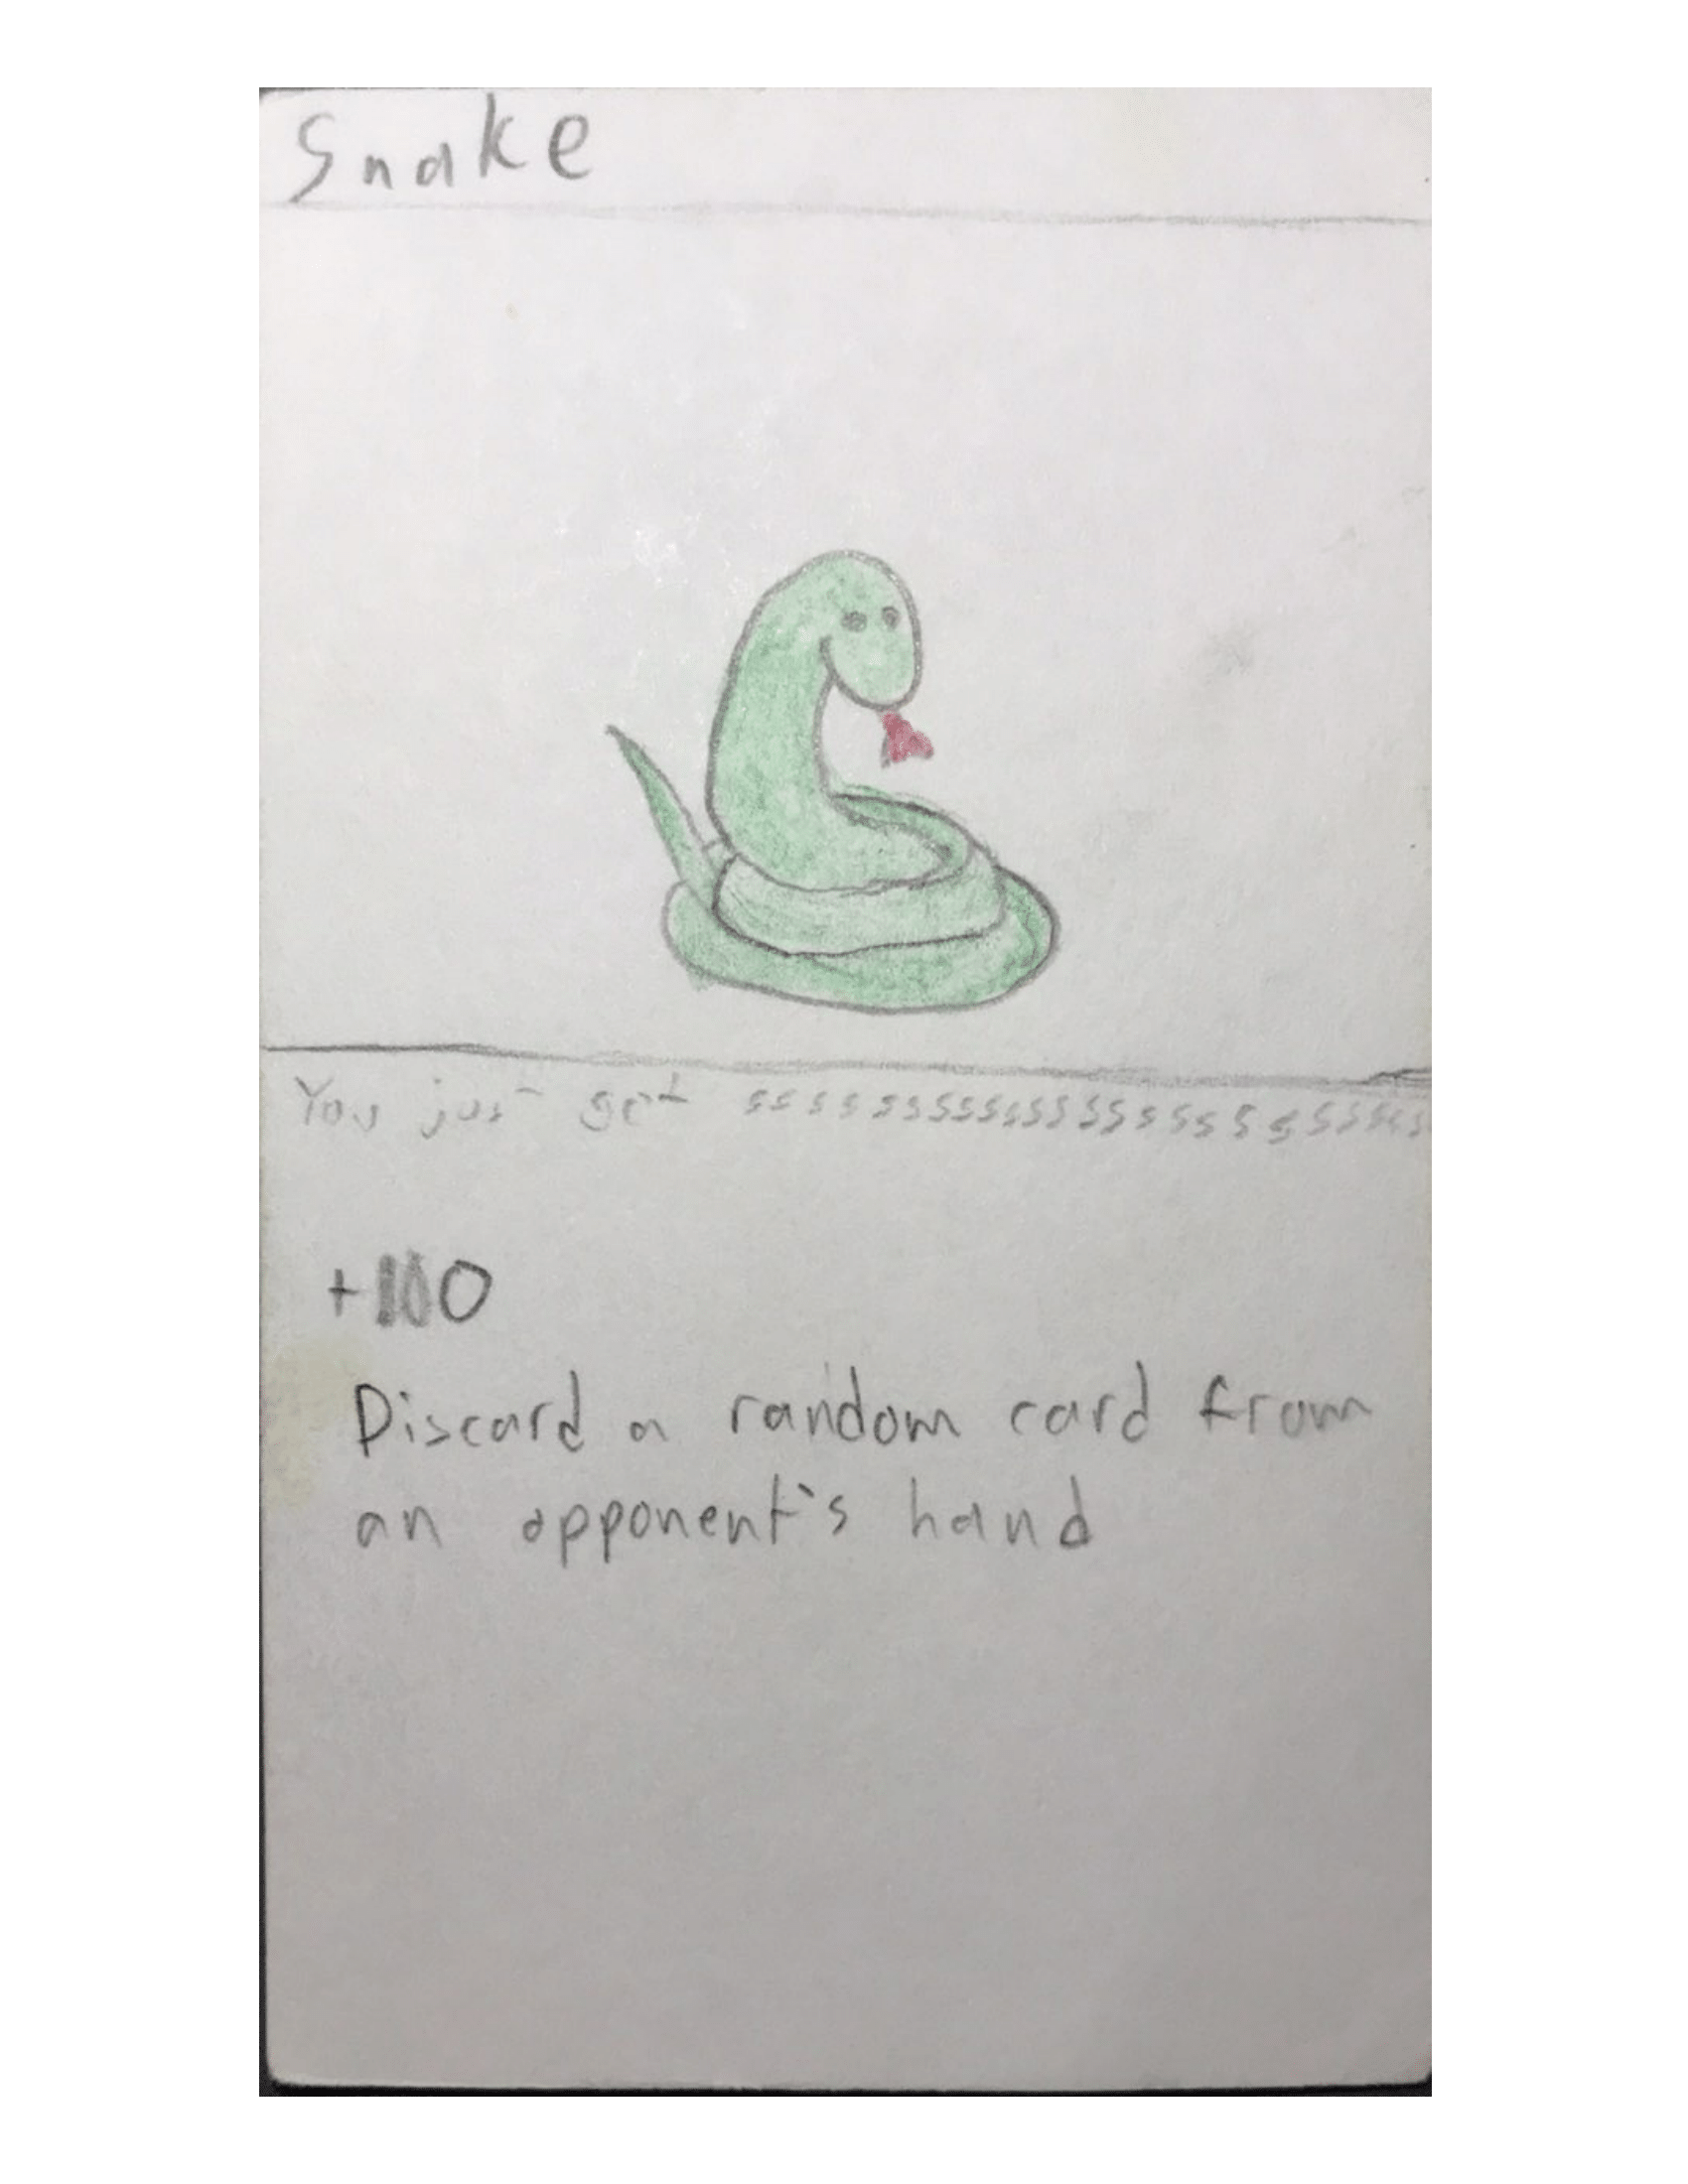 Snake
You just got ssssssssssssssssssssssss
+100
Discard a random card from
an opponent's hand